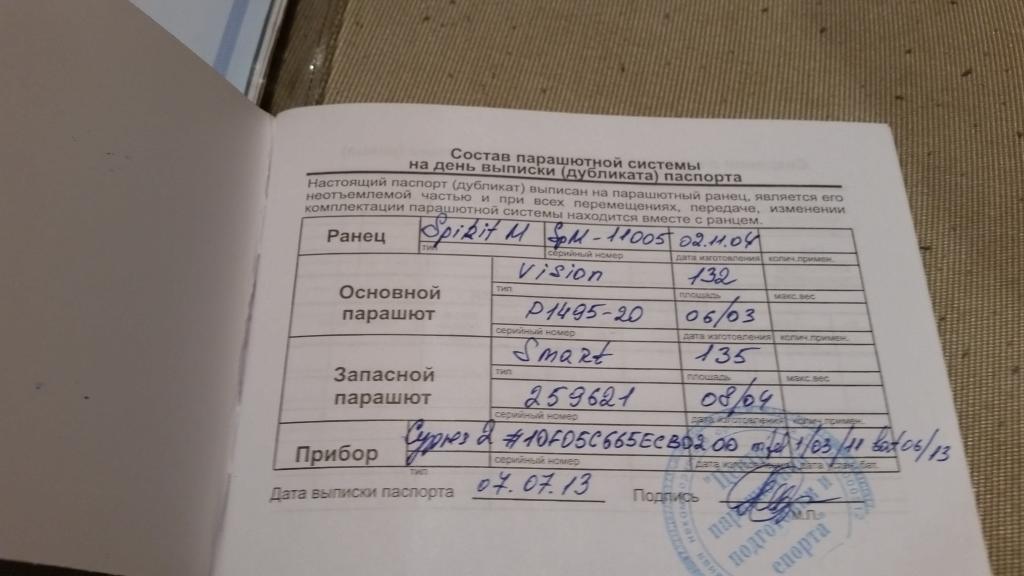 Состав парашютной системы
на день выписки (дубликата) паспорта
Настоящий паспорт (дубликат) выписан на парашютный ранец, является его
неотъемлемой частью и при всех перемещениях, передаче, изменении
комплектации парашютной системы находится вместе с ранцем.
Ранец Spirit M SpM-11005 02.11.04
тип серийный номер дата изготовления колич.примен.
Основной парашют
Vision 132
тип площадь макс.вес
P1495-20 06/03
серийный номер дата изготовления колич.примен.
Запасной парашют
Smart 135
тип площадь макс.вес
259621 08/04
серийный номер дата изготовления колич.примен.
Прибор Cypres 2 1/03/11 bat 06/13
тип серийный номер дата изготовления
Дата выписки паспорта 07.07.13 Подпись
М.П.
подготовки и
спорта